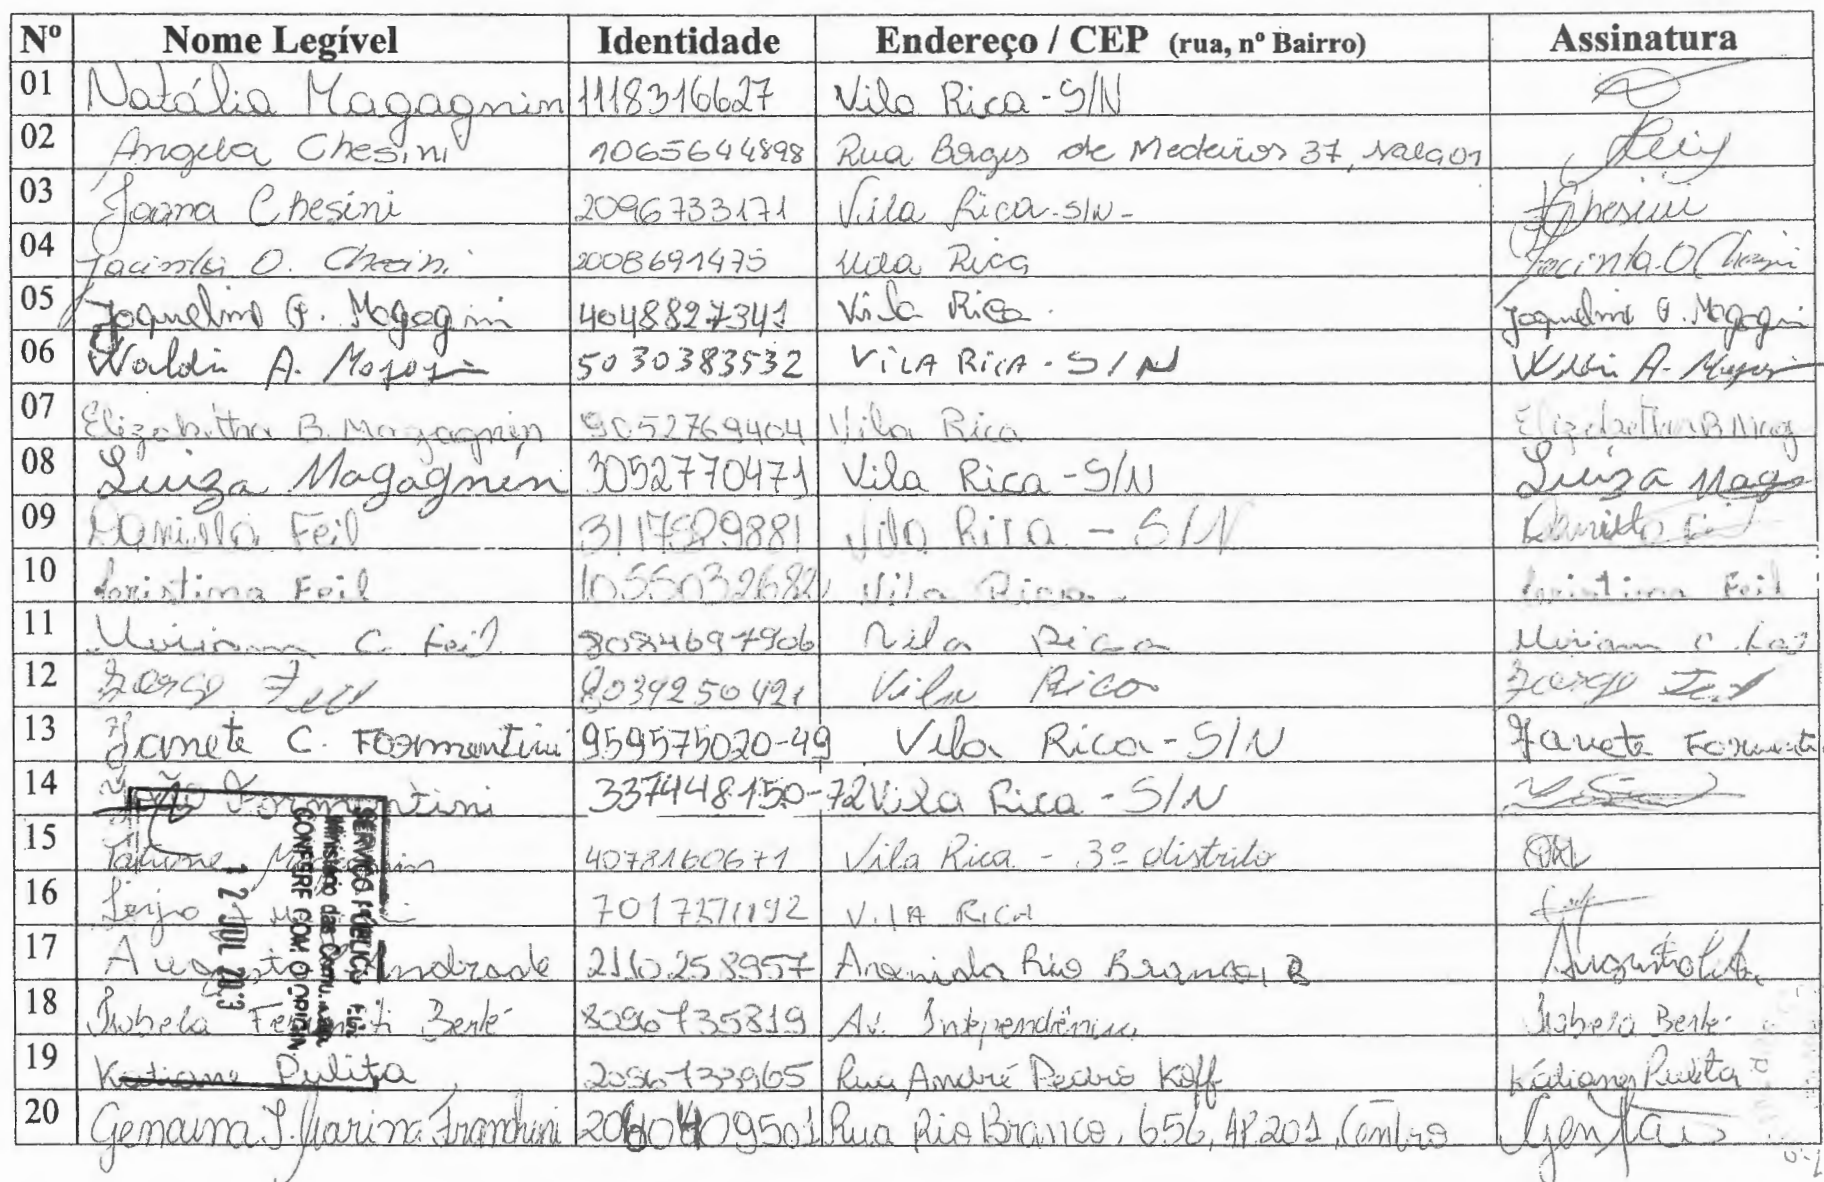 Nº Nome Legível Identidade Endereço / CEP (rua, nº Bairro) Assinatura
01 Natália Magagnin 1118316627 Vila Rica - S/N
02 Angela Chesini 1065644898 Rua Borges de Medeiros 37, sala 01
03 Joana Chesini 2096733171 Vila Rica - S/N - JChesini
04 Jacinta O. Chesini 2008691475 Vila Rica Jacinta O Chesini
05 Joquelino G. Magagnin 4048827341 Vila Rica. Joquelino G. Magagnin
06 Waldir A. 5030383532 VILA RICA - S/N Waldir A.
07 Elizabetha B. Magagnin 9052769404 Vila Rica Elizabetha B. Mag
08 Luiza Magagnin 3052770471 Vila Rica - S/N Luiza Maga
09 Danilla Feil 3117529881 Vila Rica - S/N Danilla
10 Cristina Feil 1055032682 Vila Rica Cristina Feil
11 Miriam C. Feil 8084697906 Vila Rica Miriam C.
12 8039250421 Vila Rica
13 Janete C. Formentini 959575020-49 Vila Rica - S/N Janete Formenti
14 Formentini 337448150-72 Vila Rica - S/N
15 Magagnin 4078160671 Vila Rica - 3º distrito
16 7017271192 VILA RICA
17 Andrade 2110258957 Avenida Rio Branco,
18 Isabela Berlé 8096735819 Av. Independência Isabela Berlé
19 Katiane Pulita 2096733965 Rua André Pedro Koff Katiane Pulita
20 Genaina J. Marina Franchini 2060409501 Rua Rio Branco, 656, AP. 201, Centro
SERVIÇO PÚBLICO
Ministério das
CONFERE COM O ORIGINAL
12 JUL 2013